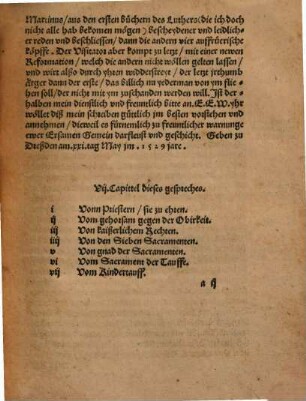 Martinus/aus den ersten büchern des Luthers: die ich doch
nicht alle hab bekomen mögen) bescheydener vnd leidli-
cher reden vnd beschliessen/dann die andern vier auffrüerische
köpffe. Der Visitator aber kompt zu letzt/mit einer newen
Reformation/welch die andern nicht wöllen gelten lassen/
vnd wirt also durch yhren widdestreit/der letzt yrthumb
Arger dann der erste/das billich jm yederman von ym flie-
hen soll/der nicht mit ym zuschanden werden will. Ist der-
halben mein dienstlich vnd freuntlich bitte an. E.E.W. yhr
wöllet diß mein schreiben güttlich jm besten vorstehen vnd
annehmen/dieweil es fürnemlich zu freuntlicher warnunge
ewer Ersamen Gemein darfleust vnd geschicht. Geben zu
Dreßden am .xxi. tag May jm. 1529 jare.
Vij. Capittel dieses gesprechs.
i Vonn Priestern/sie zu ehren.
ij Vom gehorsam gegen der Obirkeit.
iij Von kaiserlichem Rechten.
iiij Von den Sieben Sacramenten.
v Von gnad der Sacramenten.
vi Vom Sacrament der Tauffe.
vij Vom Kindertauff.
a ij